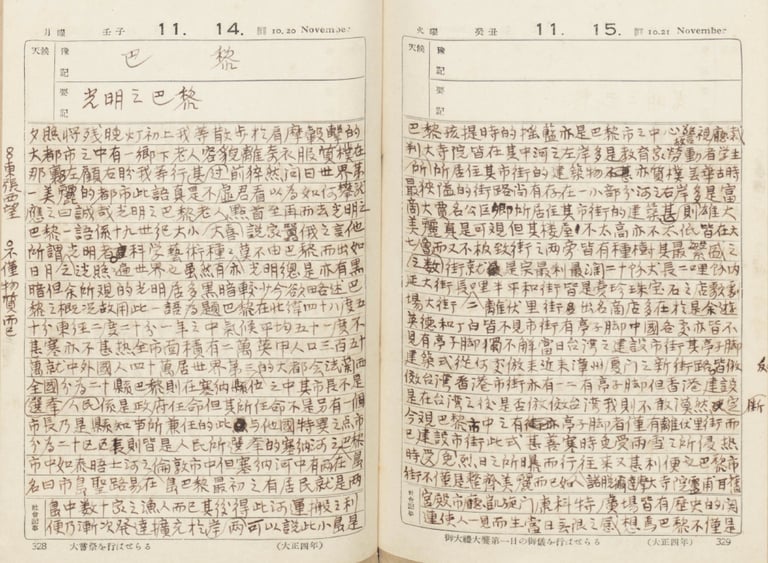 月曜 壬子 11. 14. 舊 10.20 November
天候 豫記 巴黎
要記 光明之巴黎
夕照將殘晚灯初上我等散步於肩摩轂擊的
大都市之中有一鄉下老人容貌離奇衣服質樸在
那東張西望左顧右盼我等行甚近前猝然問曰世界第
一美麗的都市此語真是不虛君看以為如何
應之曰誠哉光明之巴黎老人點首至再而去光明之
巴黎一語係十九世紀大小說家囂俄之言他
所謂光明者科學藝術種之莫不由巴黎而出如
日月之遍世界之雖然有光明總是亦有黑
暗但余所觀的光明居多黑暗較少今欲略述巴
黎之概況故用此一語為題巴黎在北緯四十八度五
十分東徑二度二十分一年之中氣候平均五十一度不
甚寒亦不甚熱全市面積有二萬英甲人口三百五十
萬就中外國人四十萬居世界第三的大都會法蘭西
全國分為二十縣巴黎則在塞納縣位之中其市長不是
選舉人民係是政府任命但其所任命不是另有一個
市長乃是縣知事所兼任的此與他國特異之點市
分為二十區區長則皆是人民所選舉的塞納河之巴黎
市中如泰晤士河之倫敦市中但塞納河中有兩在島
名曰市島聖路易在島巴黎最初之有居民就是兩
社會記事 島中數十家之漁人而已其後得此河運搬之利
便乃漸次發達擴充於岸兩可以說此小島是
8東張西望
9不僅物質而已
328 大嘗祭を行はせらる (大正四年)
火曜 癸丑 11. 15. 舊 10.21 November
天候 豫記
要記
巴黎孩提時的搖籃亦是巴黎市之中心故警視廳裁
判大寺院皆在其中河之左岸多是教育家勞動者學生
所居住其市街的建築物亦質樸在昔時
最狹隘的街路尚有存在一小部分河之右岸多是富
商大賈名公巨卿所居住其市街的建築甚雄大
美麗真是可觀但其樓屋不太高亦不太低皆在六
七層而又不敢致街之兩旁皆有種樹其最繁盛之
街就是宗最利最濶二十份大長二哩份內
是大街長一哩半平和街皆是賣珍珠寶石之店歌劇
場大街離伏里街出名商店多在於是余遊
英德和丁白皆不見市街有亭子腳中國各處亦皆不
見有亭子腳獨不解當日台灣之建設市街其亭子腳
建築式從何倣做近來漳州厦門之新街路皆倣
做台灣香港市街亦有一二有亭子腳但香港建設
是在台灣之後是否倣做台灣我則不敢漠然斷定
今觀巴黎市中之有亭子腳者僅有離伏里街而
已建設市街此式甚善寒時免受雨雪之所侵熱
時免受烈日之所曝而行往來又甚利便之巴黎市
街不僅是整齊美麗而已如人誦脫痲摩大寺院靈甫耳舊
社會記事 宮殿市廳凱旋門康科特廣場皆有歷史的淘
連使人一見而生當日無限之感想焉巴黎不僅是
御大禮大饗第一日の御儀を行はせらる (大正四年) 329